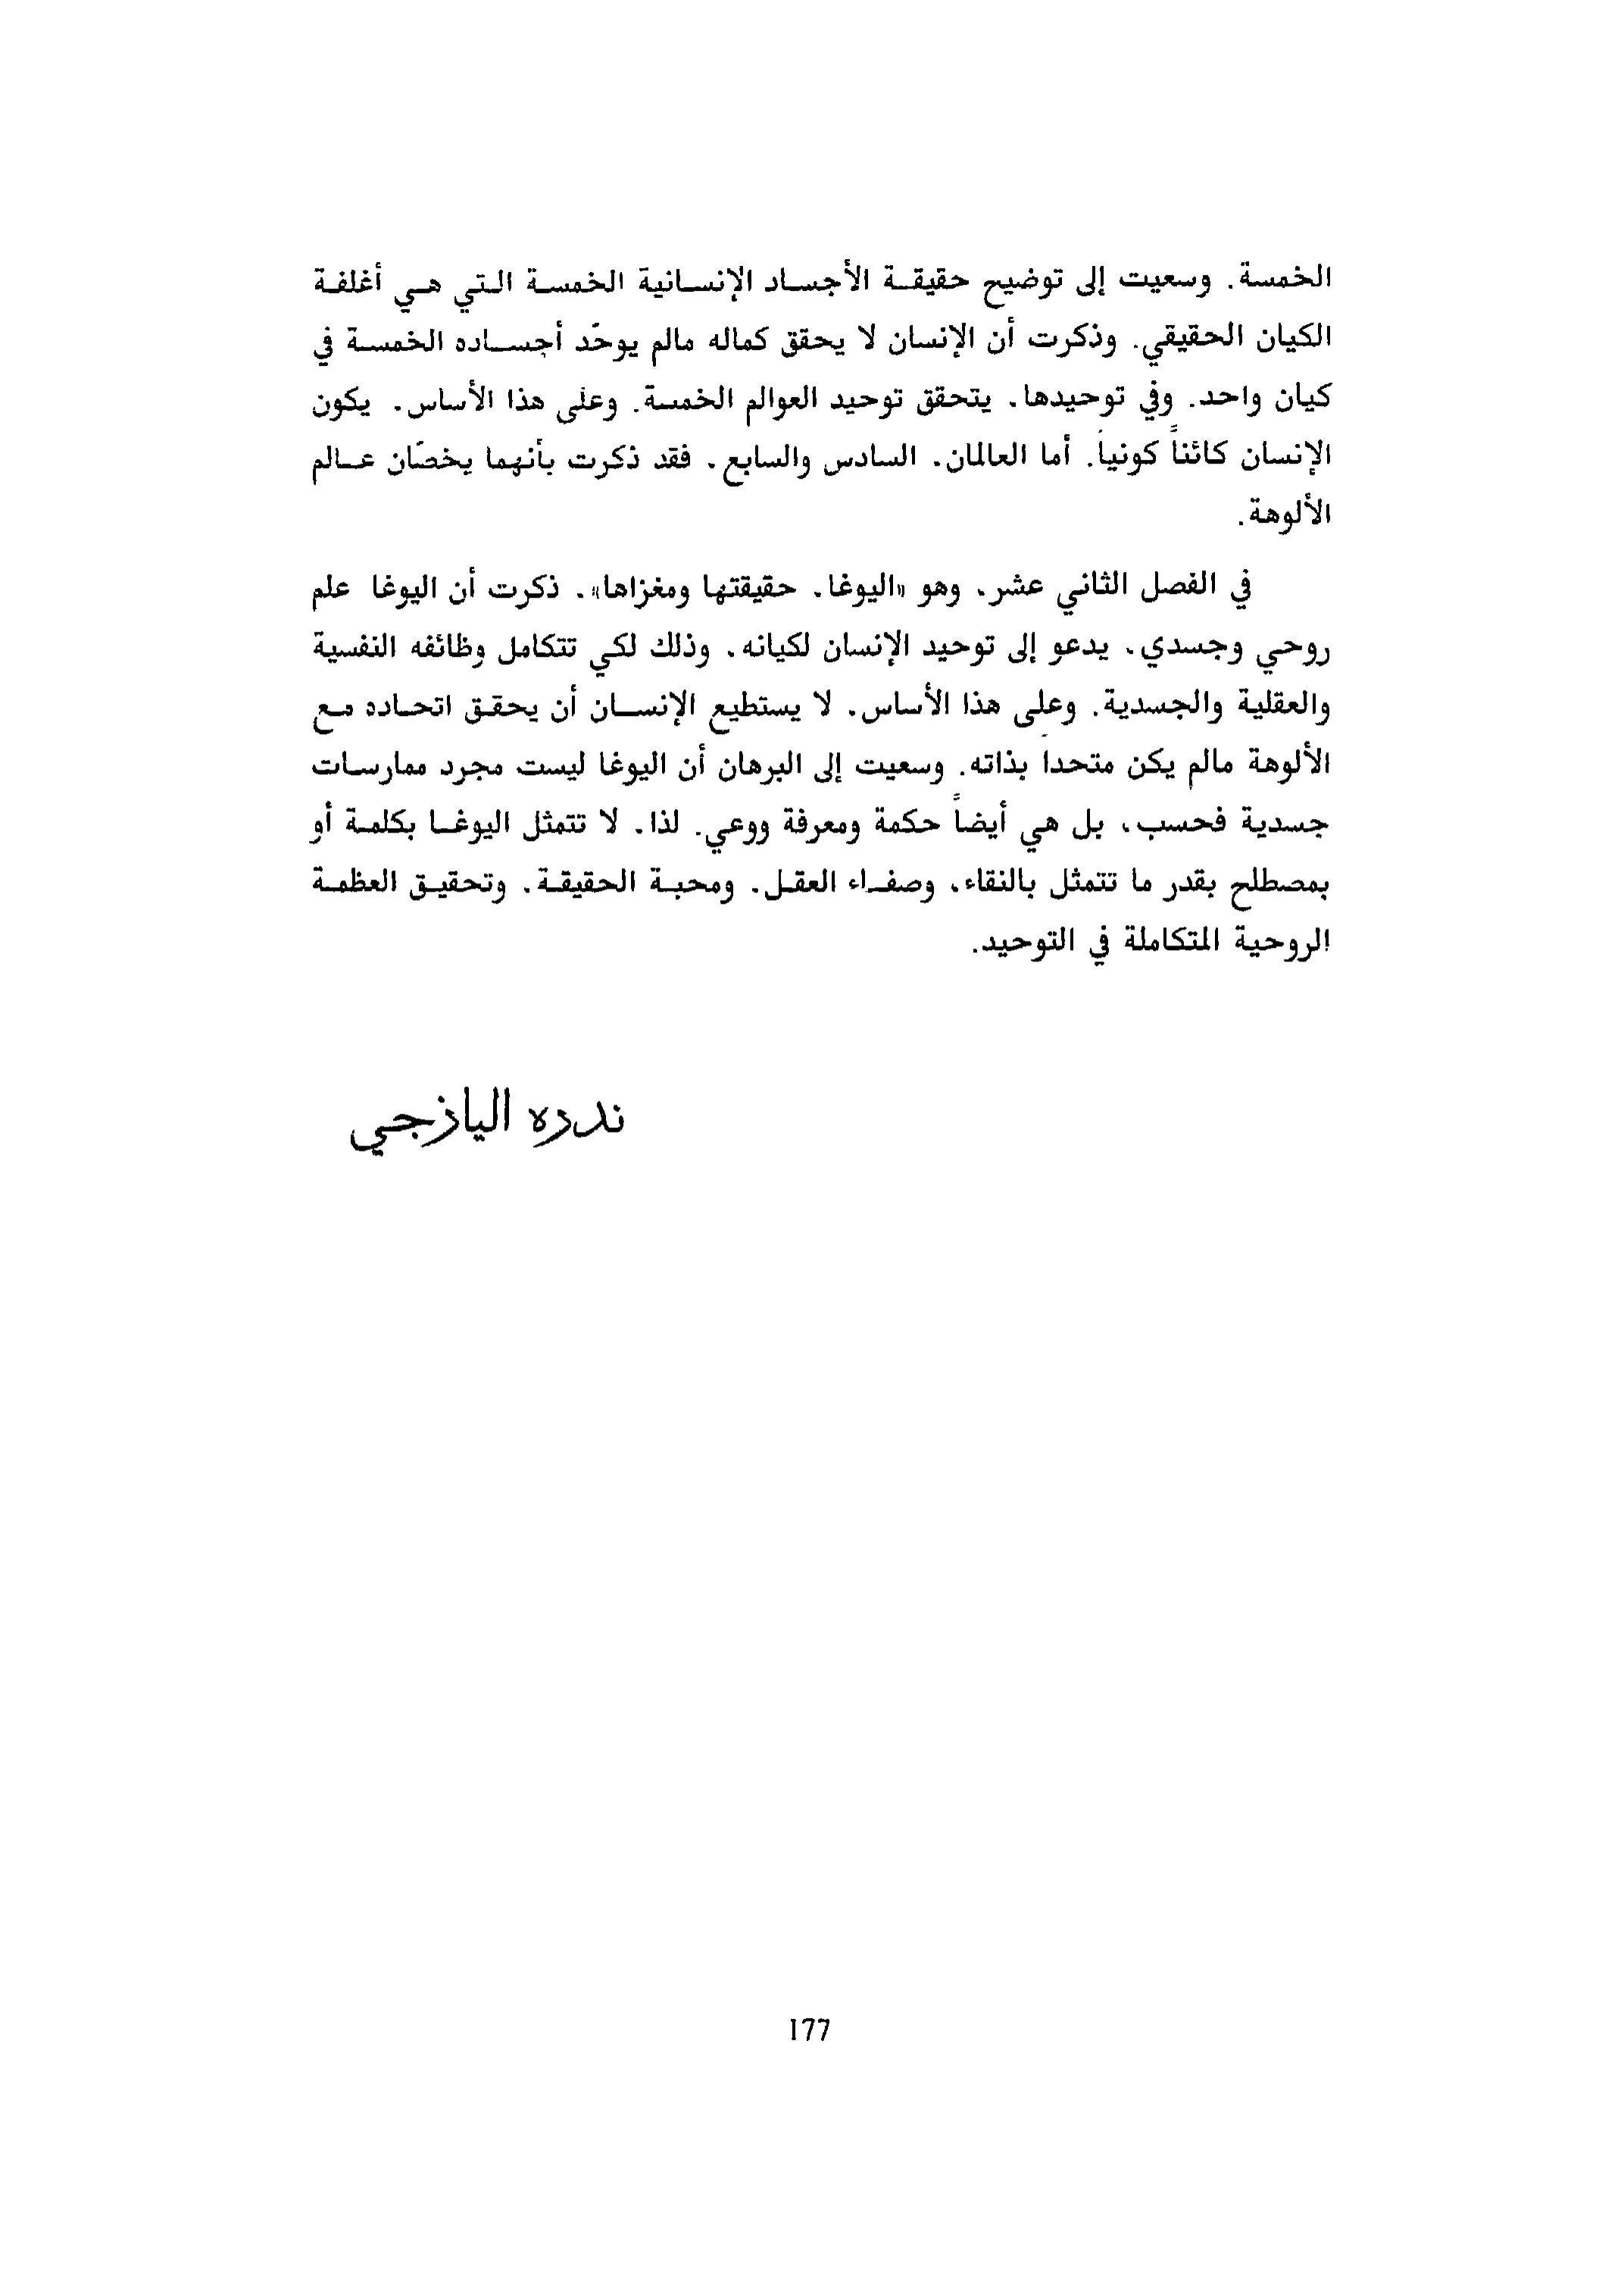 الخمسة. وسعيت إلى توضيح حقيقة الأجساد الإنسانية الخمسة التي هي أغلفة
الكيان الحقيقي. وذكرت أن الإنسان لا يحقق كماله مالم يوحّد أجساده الخمسة في
كيان واحد. وفي توحيدها، يتحقق توحيد العوالم الخمسة. وعلى هذا الأساس، يكون
الإنسان كائناً كونياً. أما العالمان، السادس والسابع، فقد ذكرت بأنهما يخصّان عالم
الألوهة.
في الفصل الثاني عشر، وهو «اليوغا، حقيقتها ومغزاها»، ذكرت أن اليوغا علم
روحي وجسدي، يدعو إلى توحيد الإنسان لكيانه، وذلك لكي تتكامل وظائفه النفسية
والعقلية والجسدية. وعلى هذا الأساس، لا يستطيع الإنسان أن يحقق اتحاده مع
الألوهة مالم يكن متحداً بذاته. وسعيت إلى البرهان أن اليوغا ليست مجرد ممارسات
جسدية فحسب، بل هي أيضاً حكمة ومعرفة ووعي. لذا، لا تتمثل اليوغا بكلمة أو
بمصطلح بقدر ما تتمثل بالنقاء، وصفاء العقل، ومحبة الحقيقة، وتحقيق العظمة
الروحية المتكاملة في التوحيد.
ندره اليازجي
177